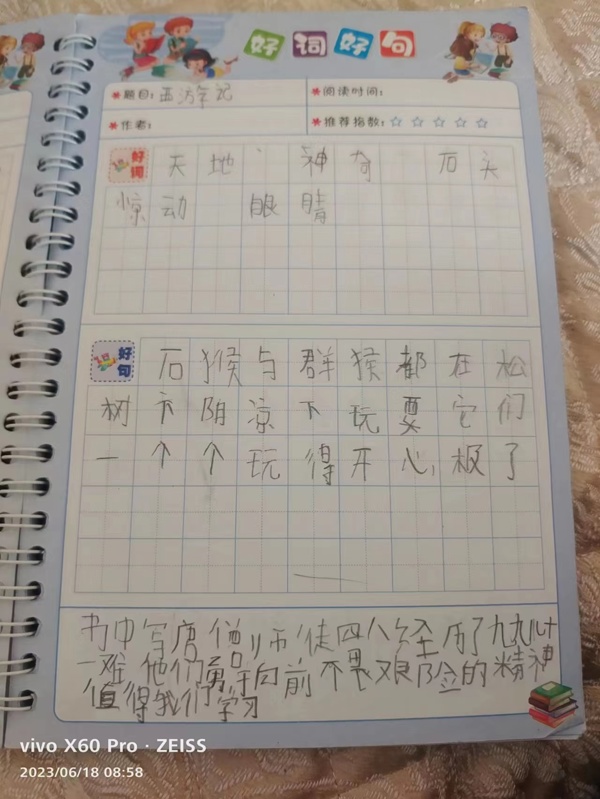 好词好句
*题目：西游记 *阅读时间：
*作者： *推荐指数：☆☆☆☆☆
好词 天地、神奇 石头
惊动 眼睛
好句 石猴与群猴都在松
树下阴凉下玩耍它们
一个个玩得开心,极了
书中写唐僧师徒四人经历了九九八十
一难 他们勇于向前不畏艰险的精神
值得我们学习
vivo X60 Pro · ZEISS
2023/06/18 08:58